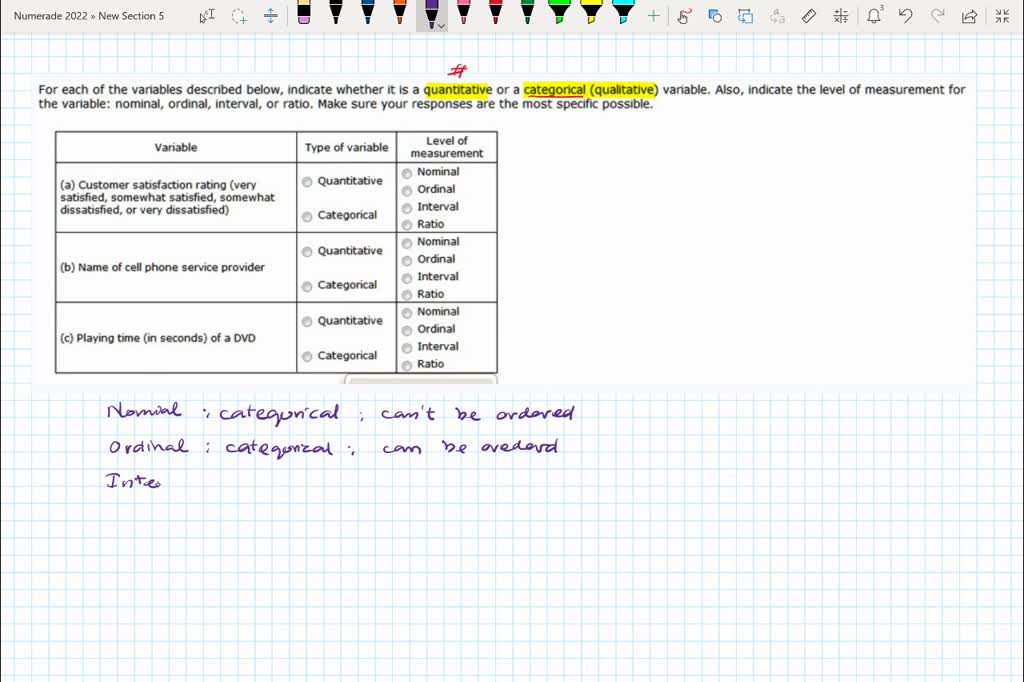 Numerade 2022 » New Section 5
3
#
For each of the variables described below, indicate whether it is a quantitative or a categorical (qualitative) variable. Also, indicate the level of measurement for
the variable: nominal, ordinal, interval, or ratio. Make sure your responses are the most specific possible.
Variable Type of variable Level of
measurement
(a) Customer satisfaction rating (very
satisfied, somewhat satisfied, somewhat
dissatisfied, or very dissatisfied)
Quantitative
Categorical
Nominal
Ordinal
Interval
Ratio
(b) Name of cell phone service provider
Quantitative
Categorical
Nominal
Ordinal
Interval
Ratio
(c) Playing time (in seconds) of a DVD
Quantitative
Categorical
Nominal
Ordinal
Interval
Ratio
Nomial : categorical ; can't be ordered
Ordinal : categorical ; can be ovedord
Inte